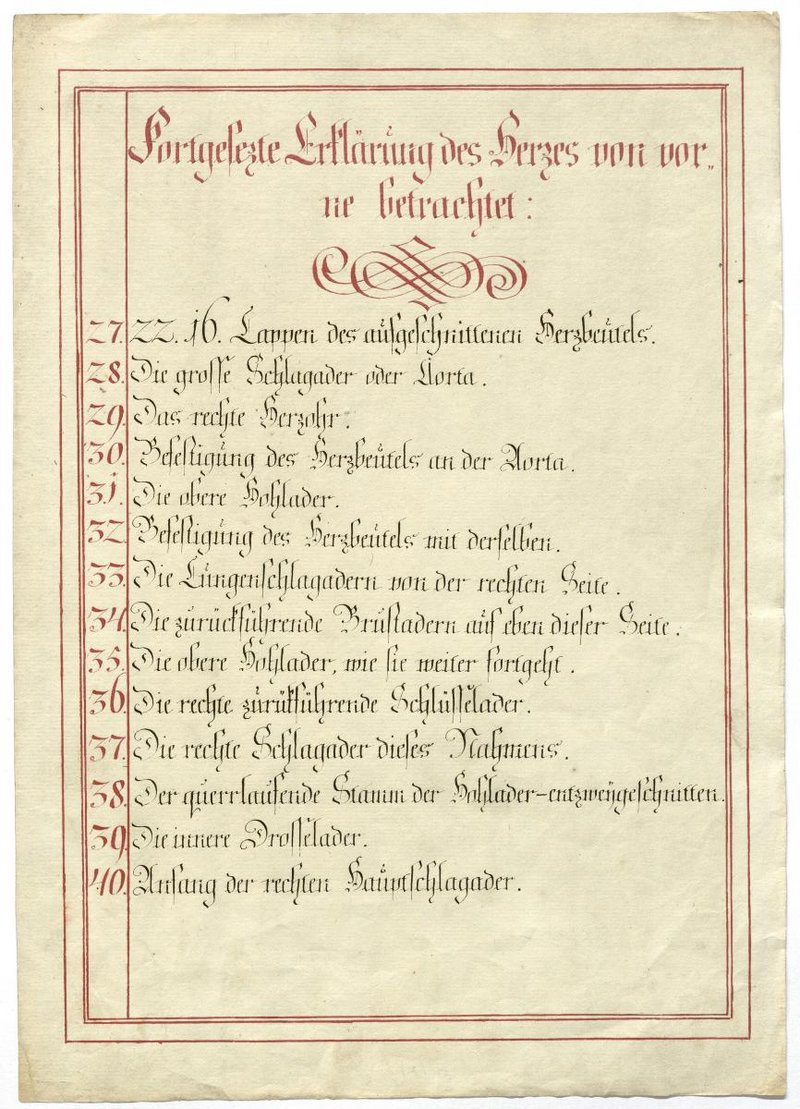 Fortgesezte Erklärung des Herzes von vor„
ne betrachtet:
27. 22. 16. Lappen des aufgeschnittenen Herzbeutels.
28. Die grosse Schlagader oder Aorta.
29. Das rechte Herzohr.
30. Befestigung des Herzbeutels an der Aorta.
31. Die obere Hohlader.
32. Befestigung des Herzbeutels mit derselben.
33. Die Lungenschlagadern von der rechten Seite.
34. Die zurückführende Brustadern auf eben dieser Seite.
35. Die obere Hohlader, wie sie weiter fortgeht.
36. Die rechte zurükführende Schlüsselader.
37. Die rechte Schlagader dieses Nahmens.
38. Der querrlaufende Stamm der Hohlader-entzweygeschnitten.
39. Die innere Drosselader.
40. Anfang der rechten Hauptschlagader.